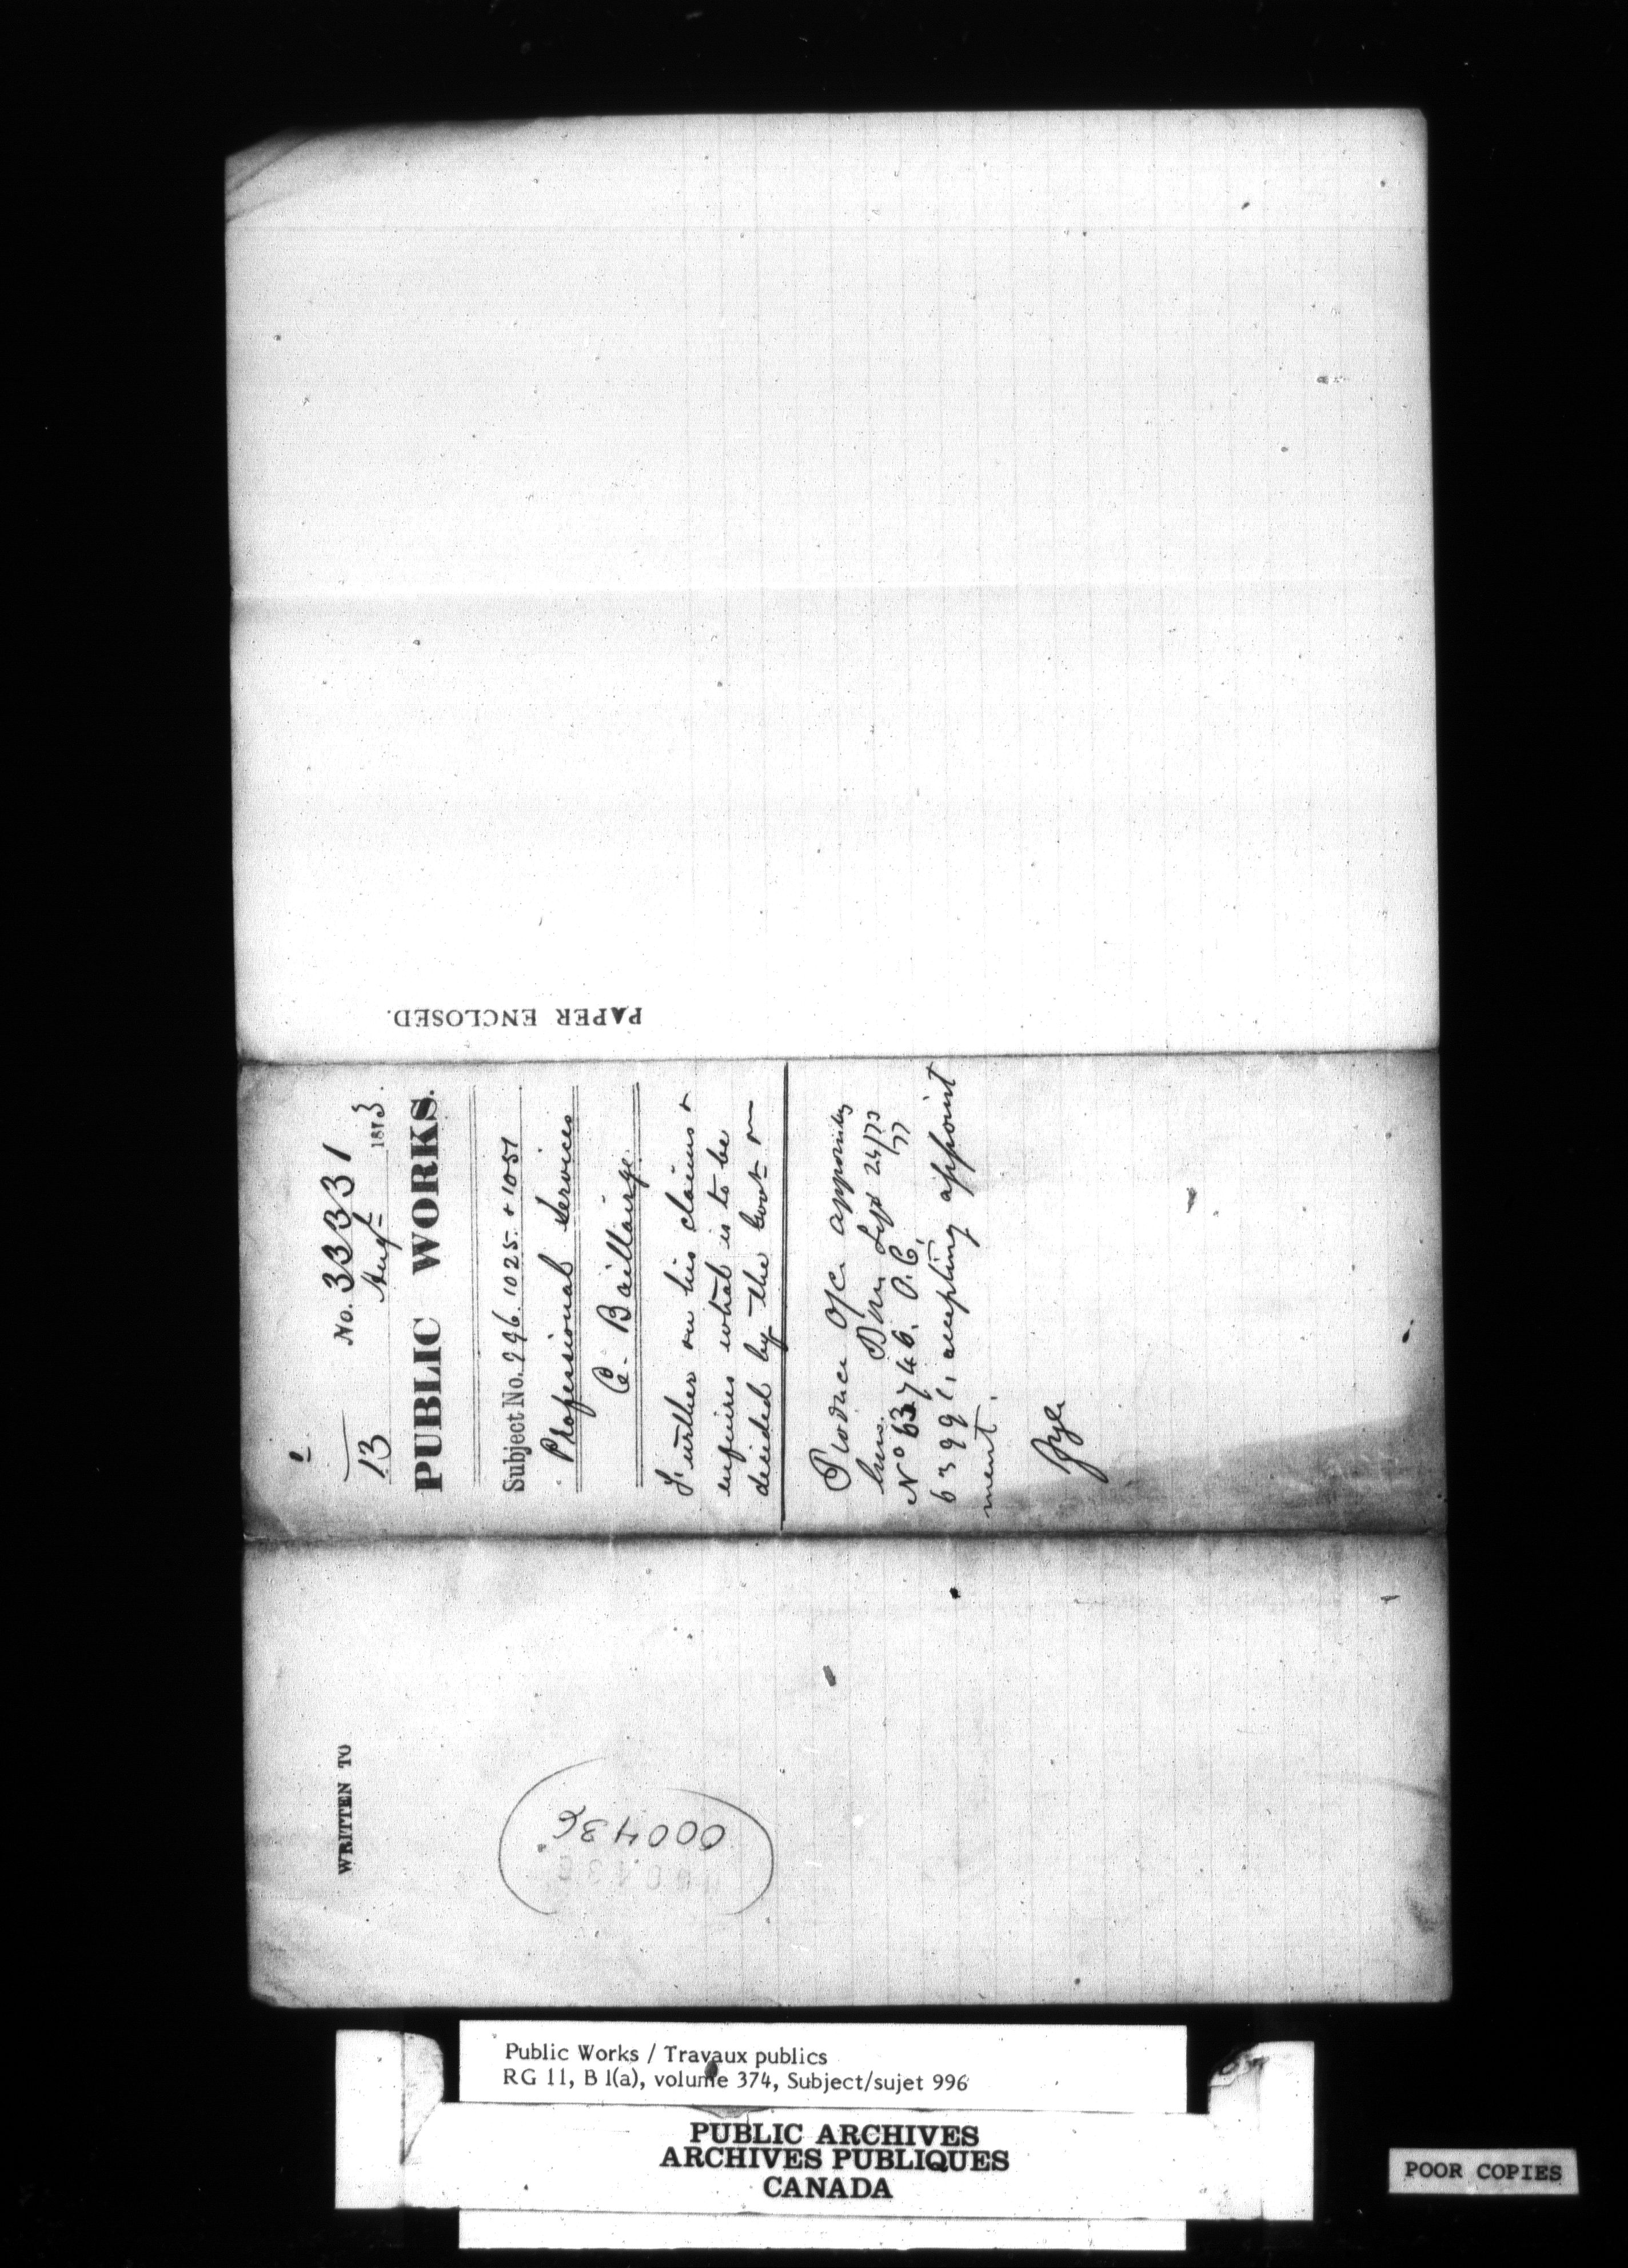 PAPER ENCLOSED.
No. 33331
13 Augt 1873.
PUBLIC WORKS.
Subject No. 996. 1025. + 1051
Professional Services
C. Baillairgé.
Further on his claims &
enquires what is to be
decided by the Govt
Produce O/C. appointing
him. Sept 24/73
No 63746. O.C.
63991, accepting appoint
ment.
WRITTEN TO
000436
Public Works / Travaux publics
RG 11, B 1(a), volume 374, Subject/sujet 996
PUBLIC ARCHIVES
ARCHIVES PUBLIQUES
CANADA
POOR COPIES